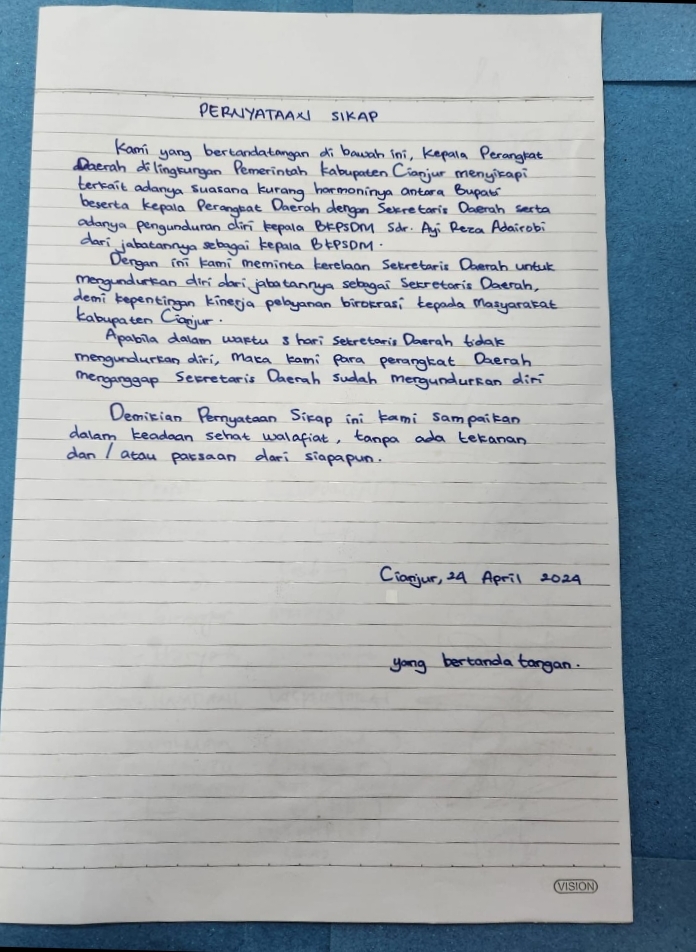 PERNYATAAN SIKAP
Kami yang bertandatangan di bawah ini, Kepala Perangkat
Daerah dilingkungan Pemerintah Kabupaten Cianjur menyikapi
terkait adanya suasana kurang harmoninya antara Bupati
beserta Kepala Perangkat Daerah dengan Sekretaris Daerah serta
adanya pengunduran diri kepala BKPSDM Sdr. Ayi Reza Adairobi
dari jabatannya sebagai kepala BKPSDM.
Dengan ini kami meminta kerelaan Sekretaris Daerah untuk
mengundurkan diri dari jabatannya sebagai Sekretaris Daerah,
demi kepentingan kinerja pelayanan birokrasi kepada Masyarakat
Kabupaten Cianjur.
Apabila dalam waktu 3 hari Sekretaris Daerah tidak
mengundurkan diri, Maka kami para perangkat Daerah
menganggap Sekretaris Daerah sudah mengundurkan diri
Demikian Pernyataan Sikap ini kami sampaikan
dalam keadaan sehat walafiat, tanpa ada tekanan
dan / atau paksaan dari siapapun.
Cianjur, 24 April 2024
yang bertanda tangan.
VISION